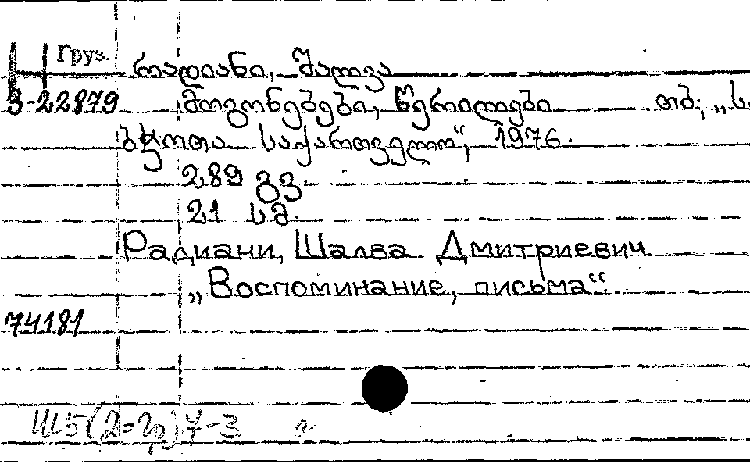 Груз.
რადიანი, შალვა
3-22879 მოგონებები, წერილები თბ., „ს.
ბჭოთა საქართველო“, 1976.
289 გვ.
21 სმ.
Радиани, Шалва Дмитриевич
„Воспоминание, письма“
74181
Ш5(2=Гр)7-3